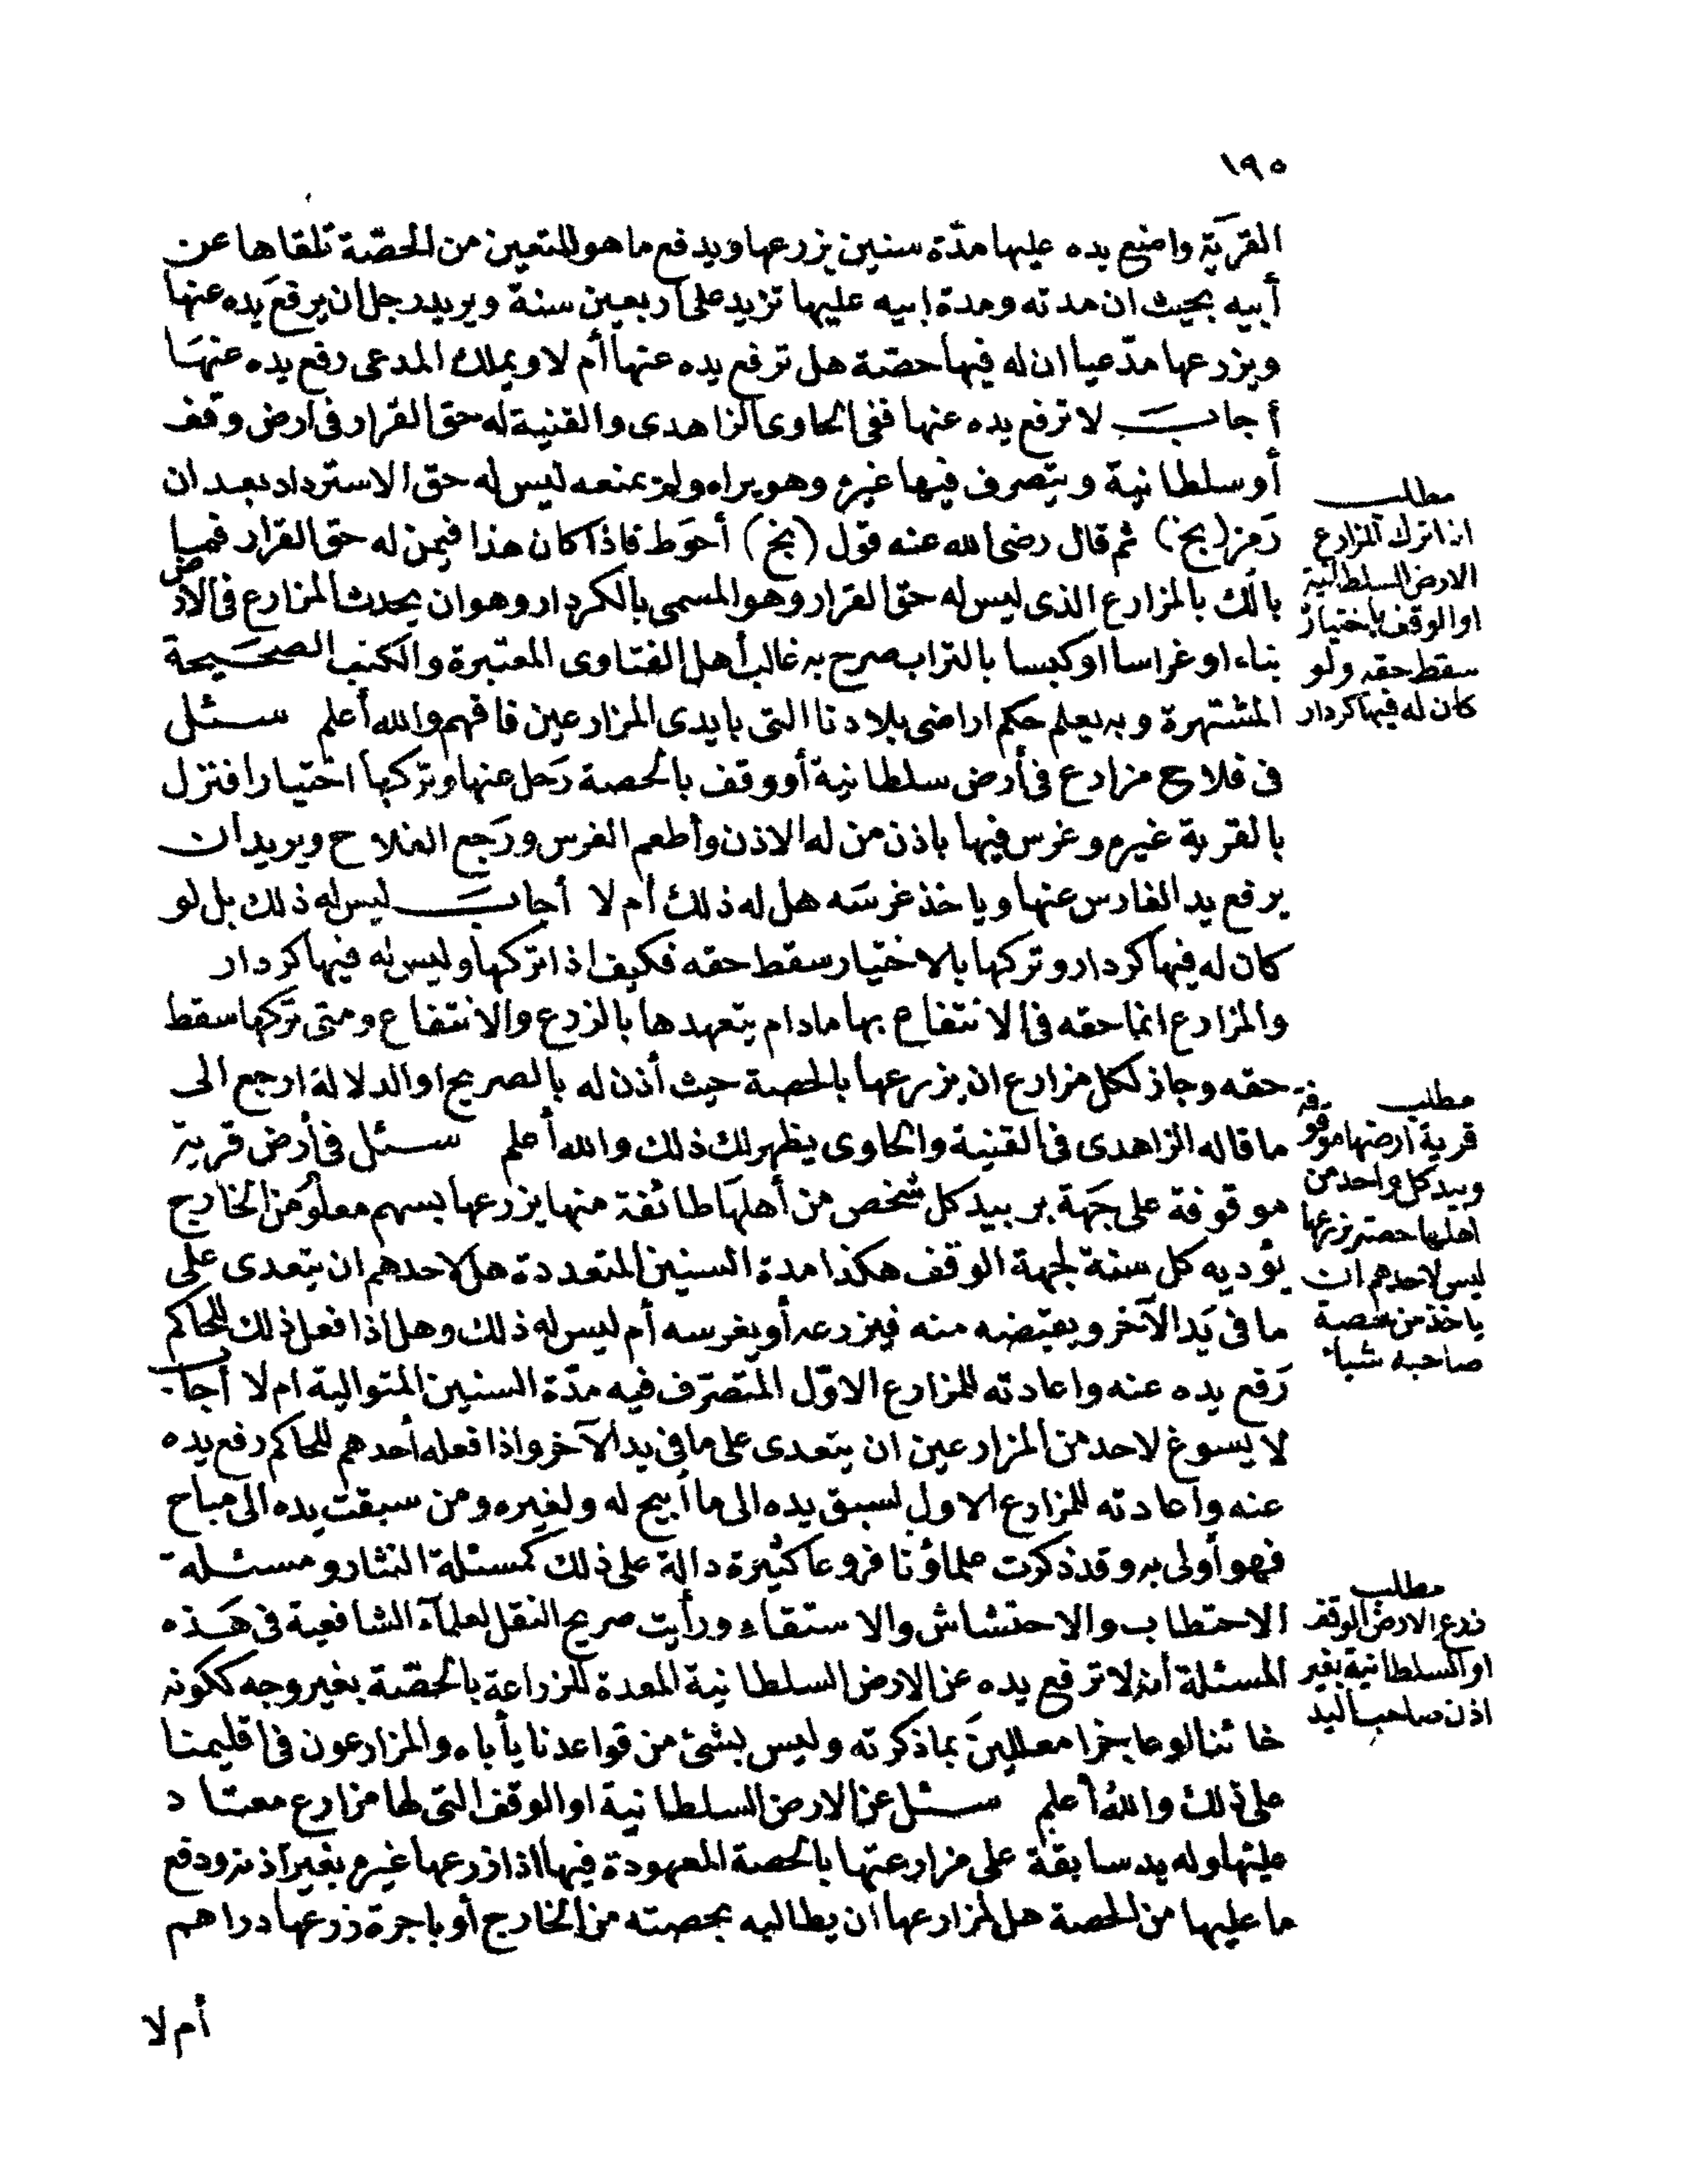 ١٩٥
القرية واضع يده عليها مدّة سنين يزرعها ويدفع ما هو المتعين من الحصّة تلقاها عن
أبيه بحيث ان مدته ومدة ابيه عليها تزيد على اربعين سنة ويريد رجل ان يرفع يده عنها
ويزرعها مدّعيا ان له فيها حصّة هل ترفع يده عنها أم لا ويملك المدعى رفع يده عنها
أجاب لا ترفع يده عنها ففى الحاوى الزاهدى والقنية له حق القرار فى ارض وقف
أو سلطانية ويتصرف فيها غيره وهو يراه ولم يمنعه ليس له حق الاسترداد بعد ان
رمز (بخ) ثم قال رضى الله عنه قول (بخ) أحوط فاذا كان هذا فيمن له حق القرار فما
بالك بالمزارع الذى ليس له حق القرار وهو المسمى بالكردار وهو ان يحدث المزارع فى الارض
بناء او غراسا او كبسا بالتراب صرح به غالب أهل الفتاوى المعتبرة والكتب الصحيحة
المشتهرة وبه يعلم حكم اراضى بلادنا التى بايدى المزارعين فافهم والله أعلم سئل
فى فلاح مزارع فى أرض سلطانية أو وقف بالحصة رحل عنها وتركها اختيارا فنزل
بالقرية غيره وغرس فيها باذن من له الاذن وأطعم الغرس ورجع الفلاح ويريد ان
يرفع يد الغارس عنها وياخذ غرسه هل له ذلك أم لا أجاب ليس له ذلك بل لو
كان له فيها كردار وتركها بالاختيار سقط حقه فكيف اذا تركها وليس له فيها كردار
والمزارع انما حقه فى الانتفاع بها مادام يتعهدها بالزرع والانتفاع ومتى تركها سقط
حقه وجاز لكل مزارع ان يزرعها بالحصة حيث أذن له بالصريح او الدلالة ارجع الى
ما قاله الزاهدى فى القنية والحاوى يظهر لك ذلك والله أعلم سئل فى أرض قرية
موقوفة على جهة بر بيد كل شخص من أهلها طائفة منها يزرعها بسهم معلوم من الخارج
يؤديه كل سنة لجهة الوقف هكذا مدة السنين المتعددة هل لاحدهم ان يتعدى على
ما فى يد الآخر ويقبضه منه فيزرعه أو يغرسه أم ليس له ذلك وهل اذا فعل ذلك للحاكم
رفع يده عنه واعادته للمزارع الاوّل المتصرّف فيه مدّة السنين المتوالية ام لا أجاب
لا يسوغ لاحد من المزارعين ان يتعدى على ما فى يد الآخر واذا فعله أحدهم للحاكم رفع يده
عنه واعادته للمزارع الاول لسبق يده الى ما أبيح له ولغيره ومن سبقت يده الى مباح
فهو أولى به وقد ذكرت علماؤنا فروعا كثيرة دالة على ذلك كمسئلة النثار ومسئلة
الاحتطاب والاحتشاش والاستقاء ورأيت صريح النقل لعلماء الشافعية فى هذه
المسئلة أنه لا ترفع يده عن الارض السلطانية المعدة للزراعة بالحصّة بغير وجه ككونه
خائنا او عاجزا معللين بما ذكرته وليس بشئ من قواعدنا يأباه والمزارعون فى اقليمنا
على ذلك والله أعلم سئل عن الارض السلطانية او الوقف التى لها مزارع معتاد
عليها وله يد سابقة على مزارعتها بالحصة المعهودة فيها اذا زرعها غيره بغير اذنه ودفع
ما عليها من الحصة هل لمزارعها ان يطالبه بحصته من الخارج أو باجرة زرعها دراهم
أم لا
مطلب
اذا ترك المزارع
الارض السلطانية
او الوقف باختياره
سقط حقه ولو
كان له فيها كردار
مطلب
قرية ارضها موقوفة
وبيد كل واحد من
اهلها حصة يزرعها
ليس لاحدهم ان
ياخذ من حصة
صاحبه شيأ
مطلب
زرع الارض الوقف
او السلطانية بغير
اذن صاحب اليد